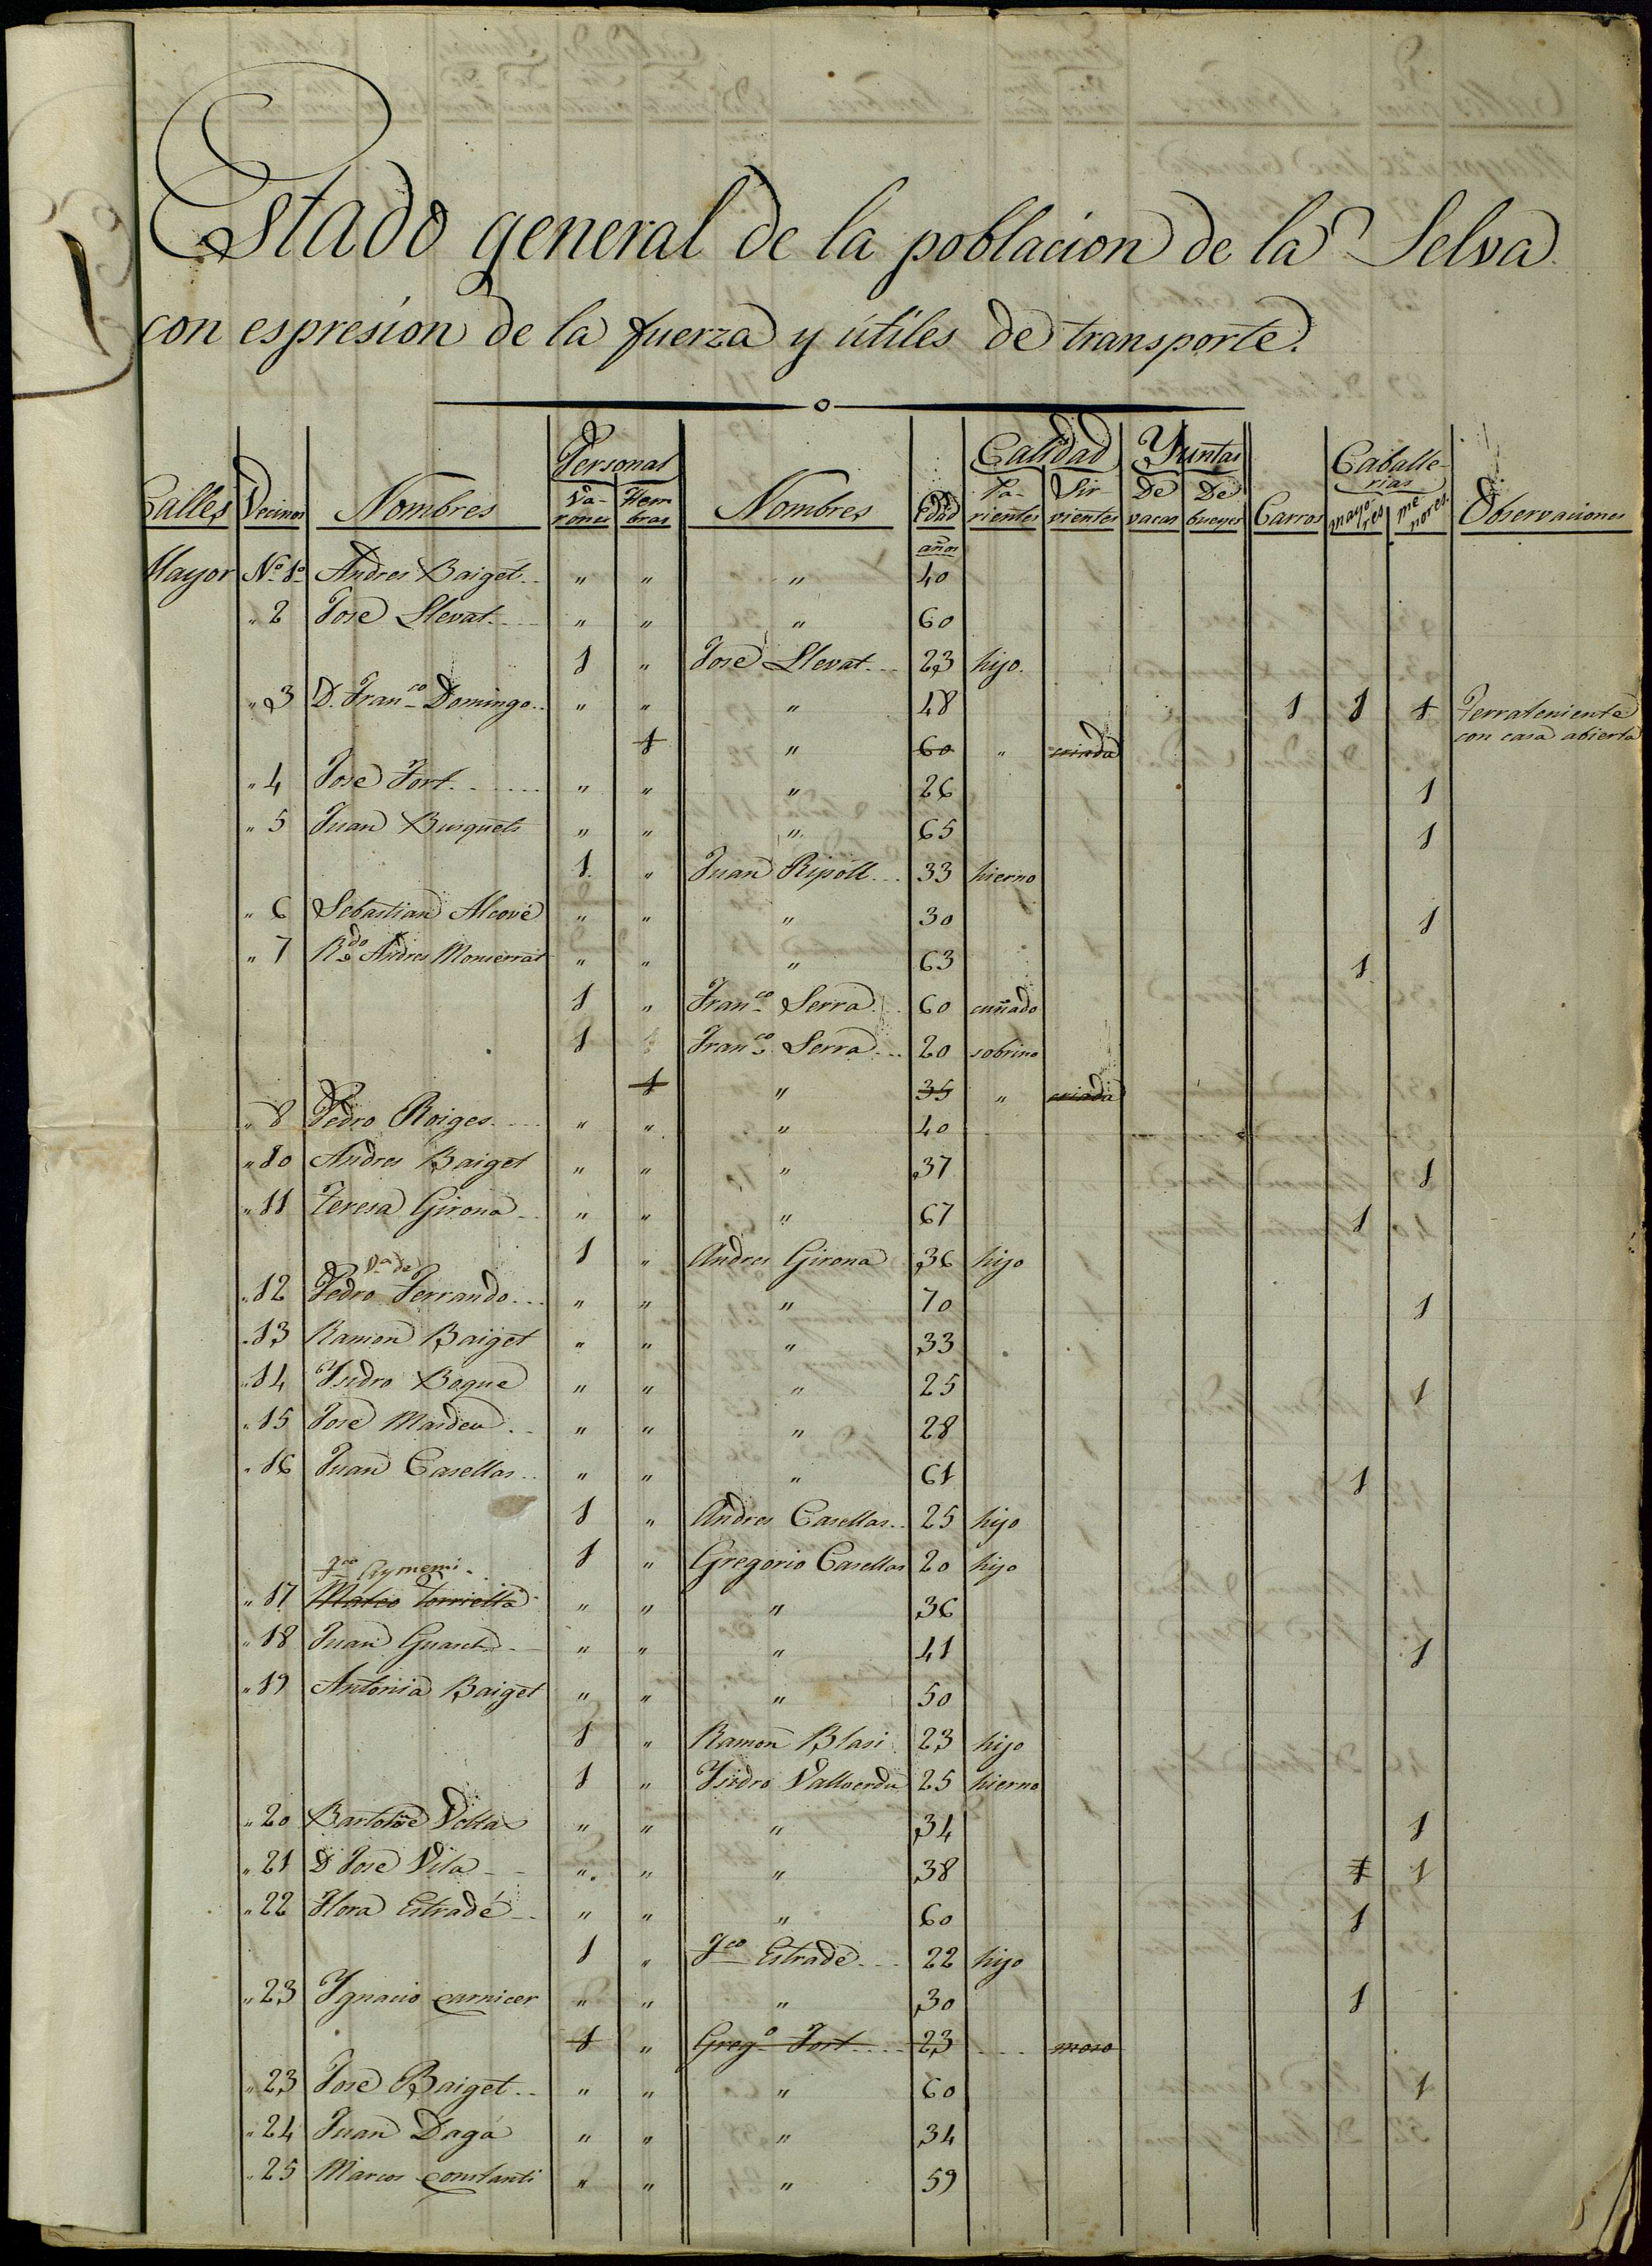 Estado general de la poblacion de la Selva
con espresion de la fuerza y útiles de transporte.
Calles Vecinos Nombres Personal Va-rones Hem-bras Nombres Edad Calidad Pa-rientes Sir-vientes Yuntas De vacas De bueyes Carros Caballe-rias mayo-res me-nores Observaciones
años
Mayor Nº 1º Andres Baiget.. " " " 40
" 2 Jose Llevat.... " " " 60
1 " Jose Llevat... 23 hijo.
" 3 D. Franco Domingo.. " " " 48 1 1 1 Terrateniente
1 " 60 " criada con casa abierta
" 4 Jose Fort....... " " " 26 1
" 5 Juan Busquets " " " 65 1
1 " Juan Ripoll... 33 hierno
" 6 Sebastian Alcové " " " 30 1
" 7 Rdo Andres Monserrat " " " 63 1
1 " Franco Serra... 60 cuñado
1 Franco Serra... 20 sobrino
1 " 35 " criada
" 8 Pedro Roiges.... " " " 40
" 10 Andres Baiget " " " 37 1
" 11 Teresa Girona.. " " " 67 1
1 " Andres Girona 36 hijo
Va de
" 12 Pedro Ferrando... " " " 70 1
" 13 Ramon Baiget " " " 33
" 14 Ysidro Bogue " " " 25 1
" 15 Jose Masdeu.. " " " 28
" 16 Juan Casellas.. " " " 61 1
1 " Andres Casellas.. 25 hijo
1 " Gregorio Casellas 20 hijo
Fco Aymemi.
" 17 Mateo Torriella " " " 36
" 18 Juan Guasch.. " " " 41 1
" 19 Antonia Baiget " " " 50
1 " Ramon Blasi 23 hijo
1 " Ysidro Vallverdu 25 hierno
" 20 Bartolome Voltas " " " 34 1
" 21 D Jose Vila.. " " " 38 1 1
" 22 Flora Estradé.. " " " 60 1
1 " Fco Estradé... 22 hijo
" 23 Ygnacio carnicer " " " 30 1
1 " Grego Fort.... 23 .... moso
" 23 Jose Baiget.. " " " 60 1
" 24 Juan Dagá " " " 34
" 25 Marcos constanti " " " 59